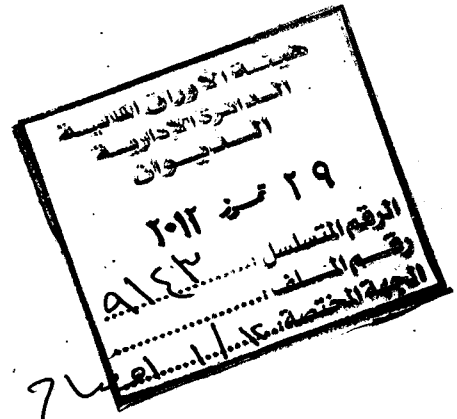 هيئة الاوراق المالية
الدائرة الادارية
الديوان
٢٩ تموز ٢٠١٢
الرقم المتسلسل: ٩١٤٣
رقم الملف:
الجهة المختصة: